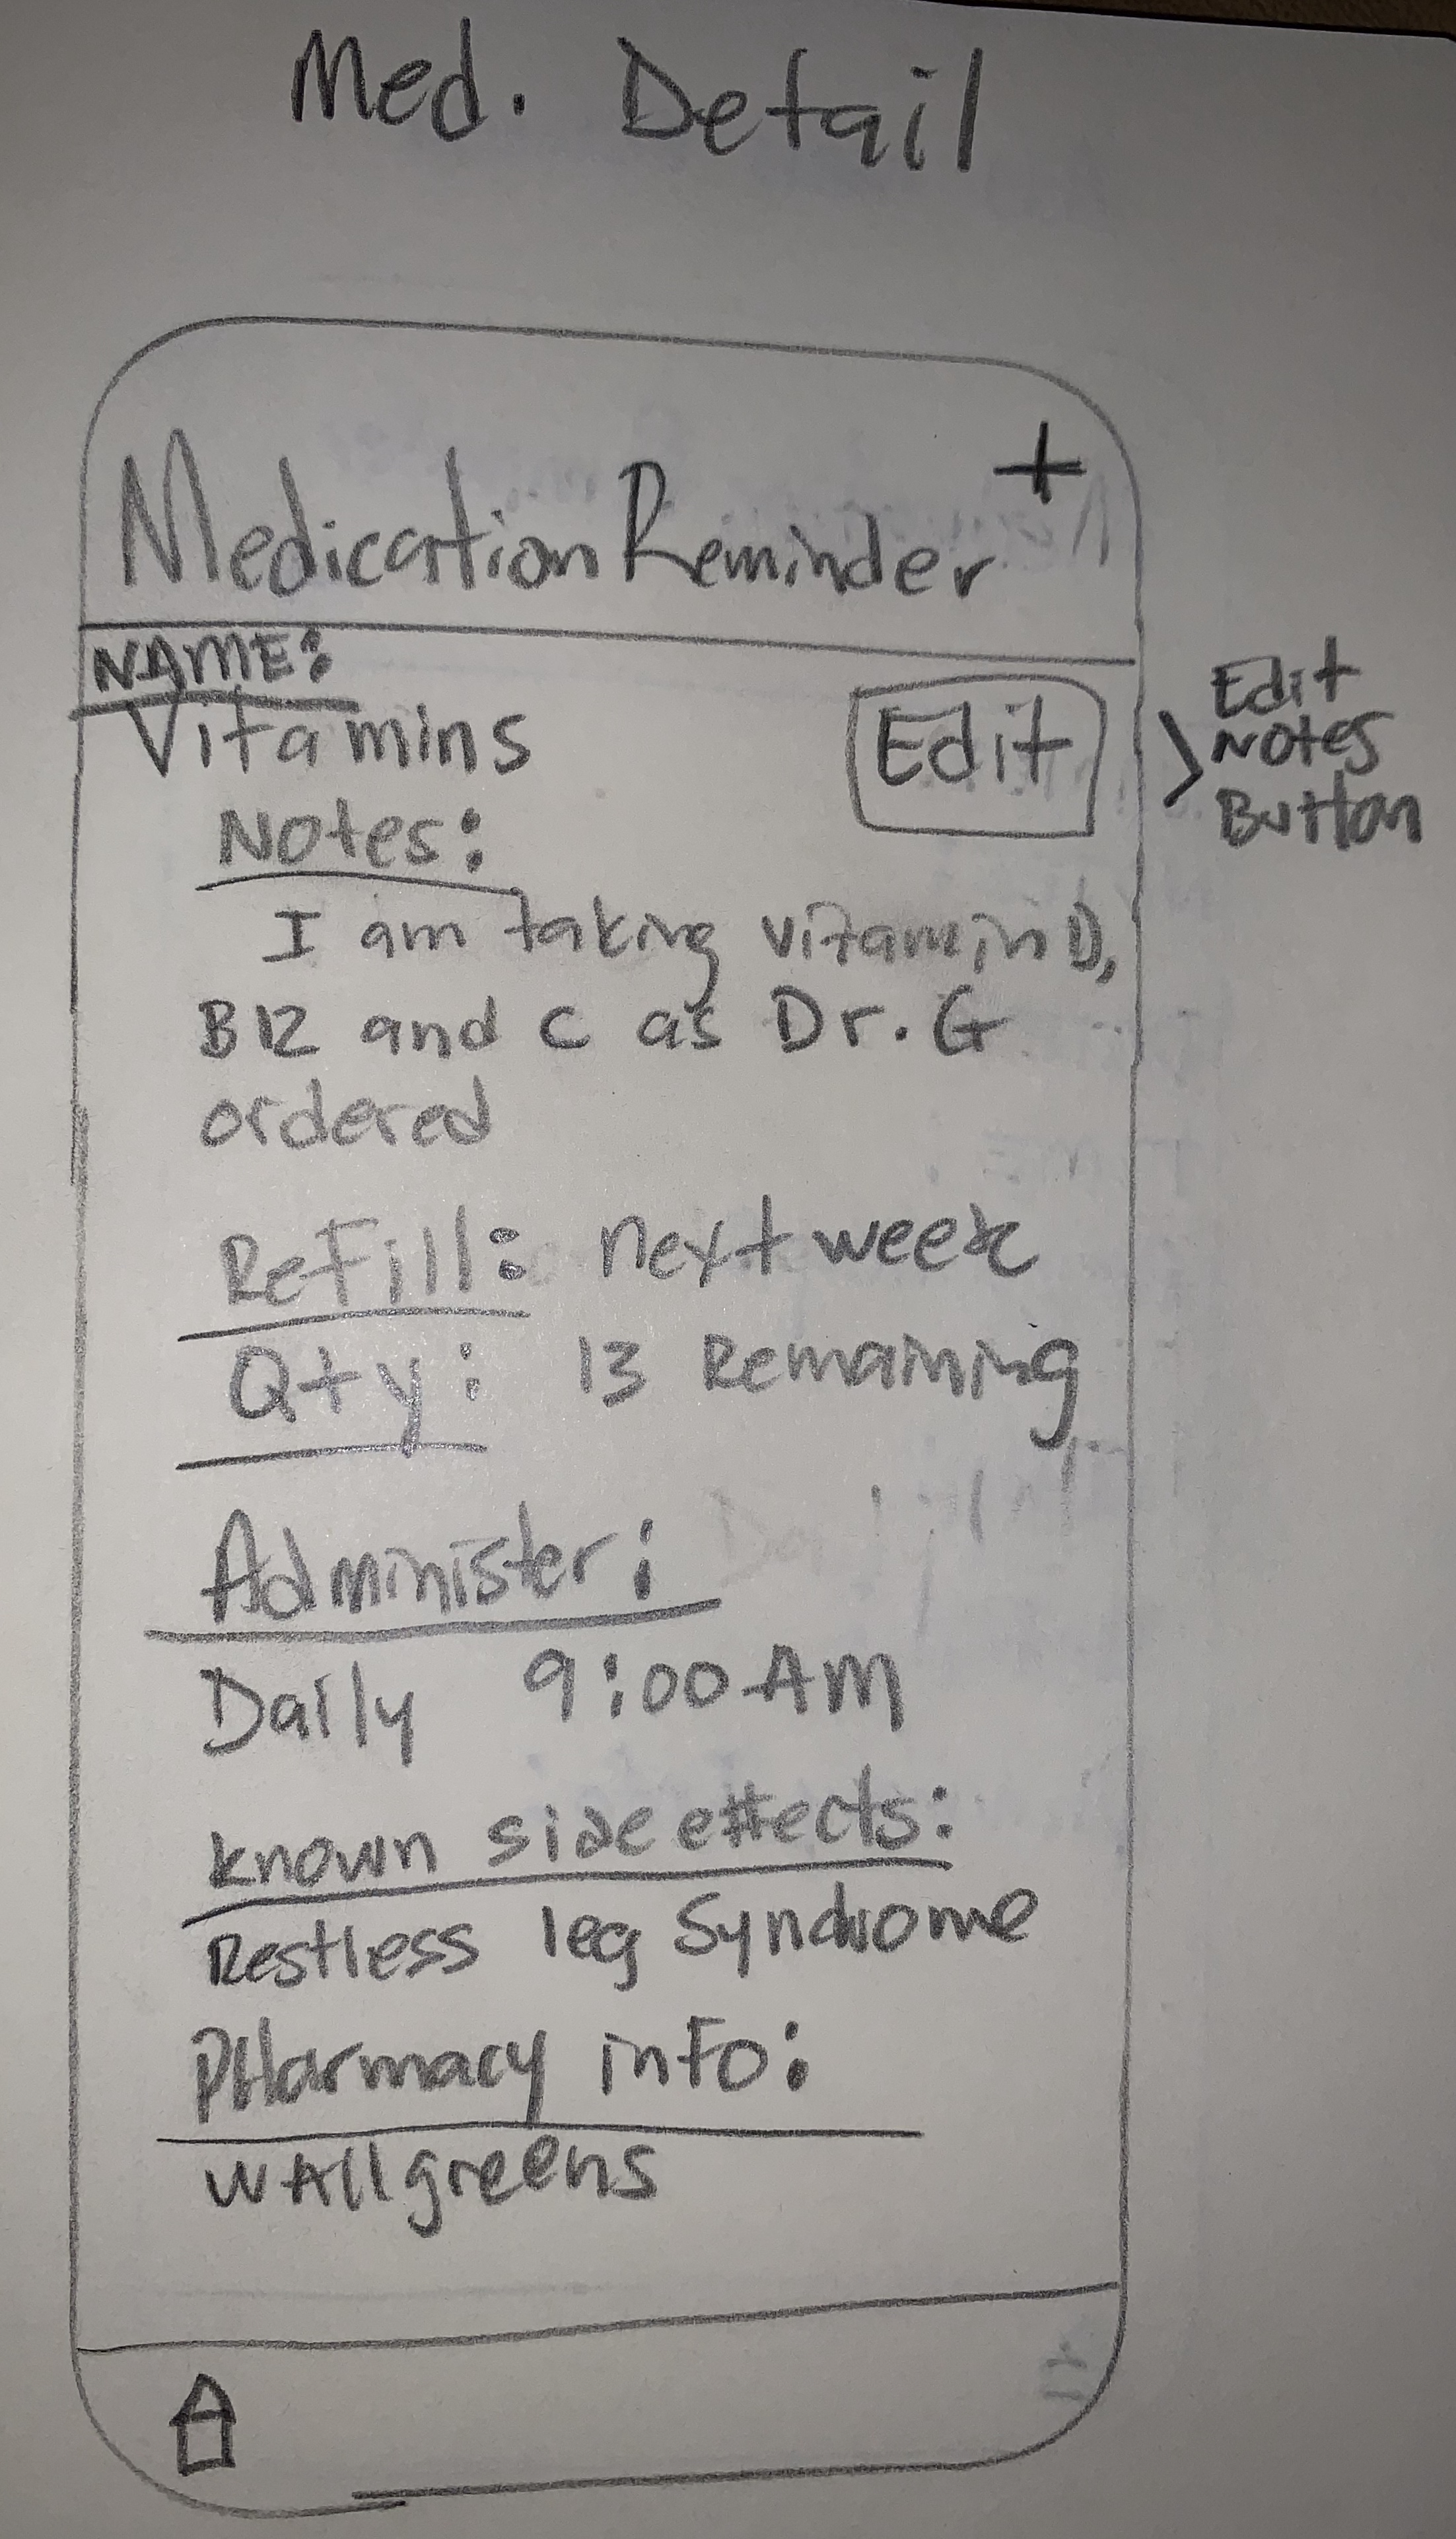 Med. Detail
+
Medication Reminder
NAME:
Vitamins
Edit
Edit
Notes
Button
Notes:
I am taking vitamin D,
B12 and C as Dr. G
ordered
Refill: next week
Qty: 13 Remaining
Administer:
Daily 9:00 AM
known side effects:
Restless leg Syndrome
PHarmacy info:
WAllgreens